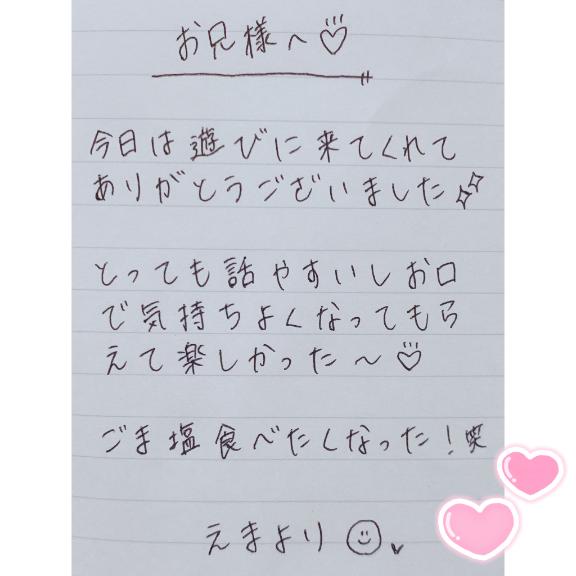 お兄様へ♡
今日は遊びに来てくれて
ありがとうございました✨
とっても話やすいしお口
で気持ちよくなってもら
えて楽しかった〜♡
ごま塩食べたくなった!笑
えまより☺